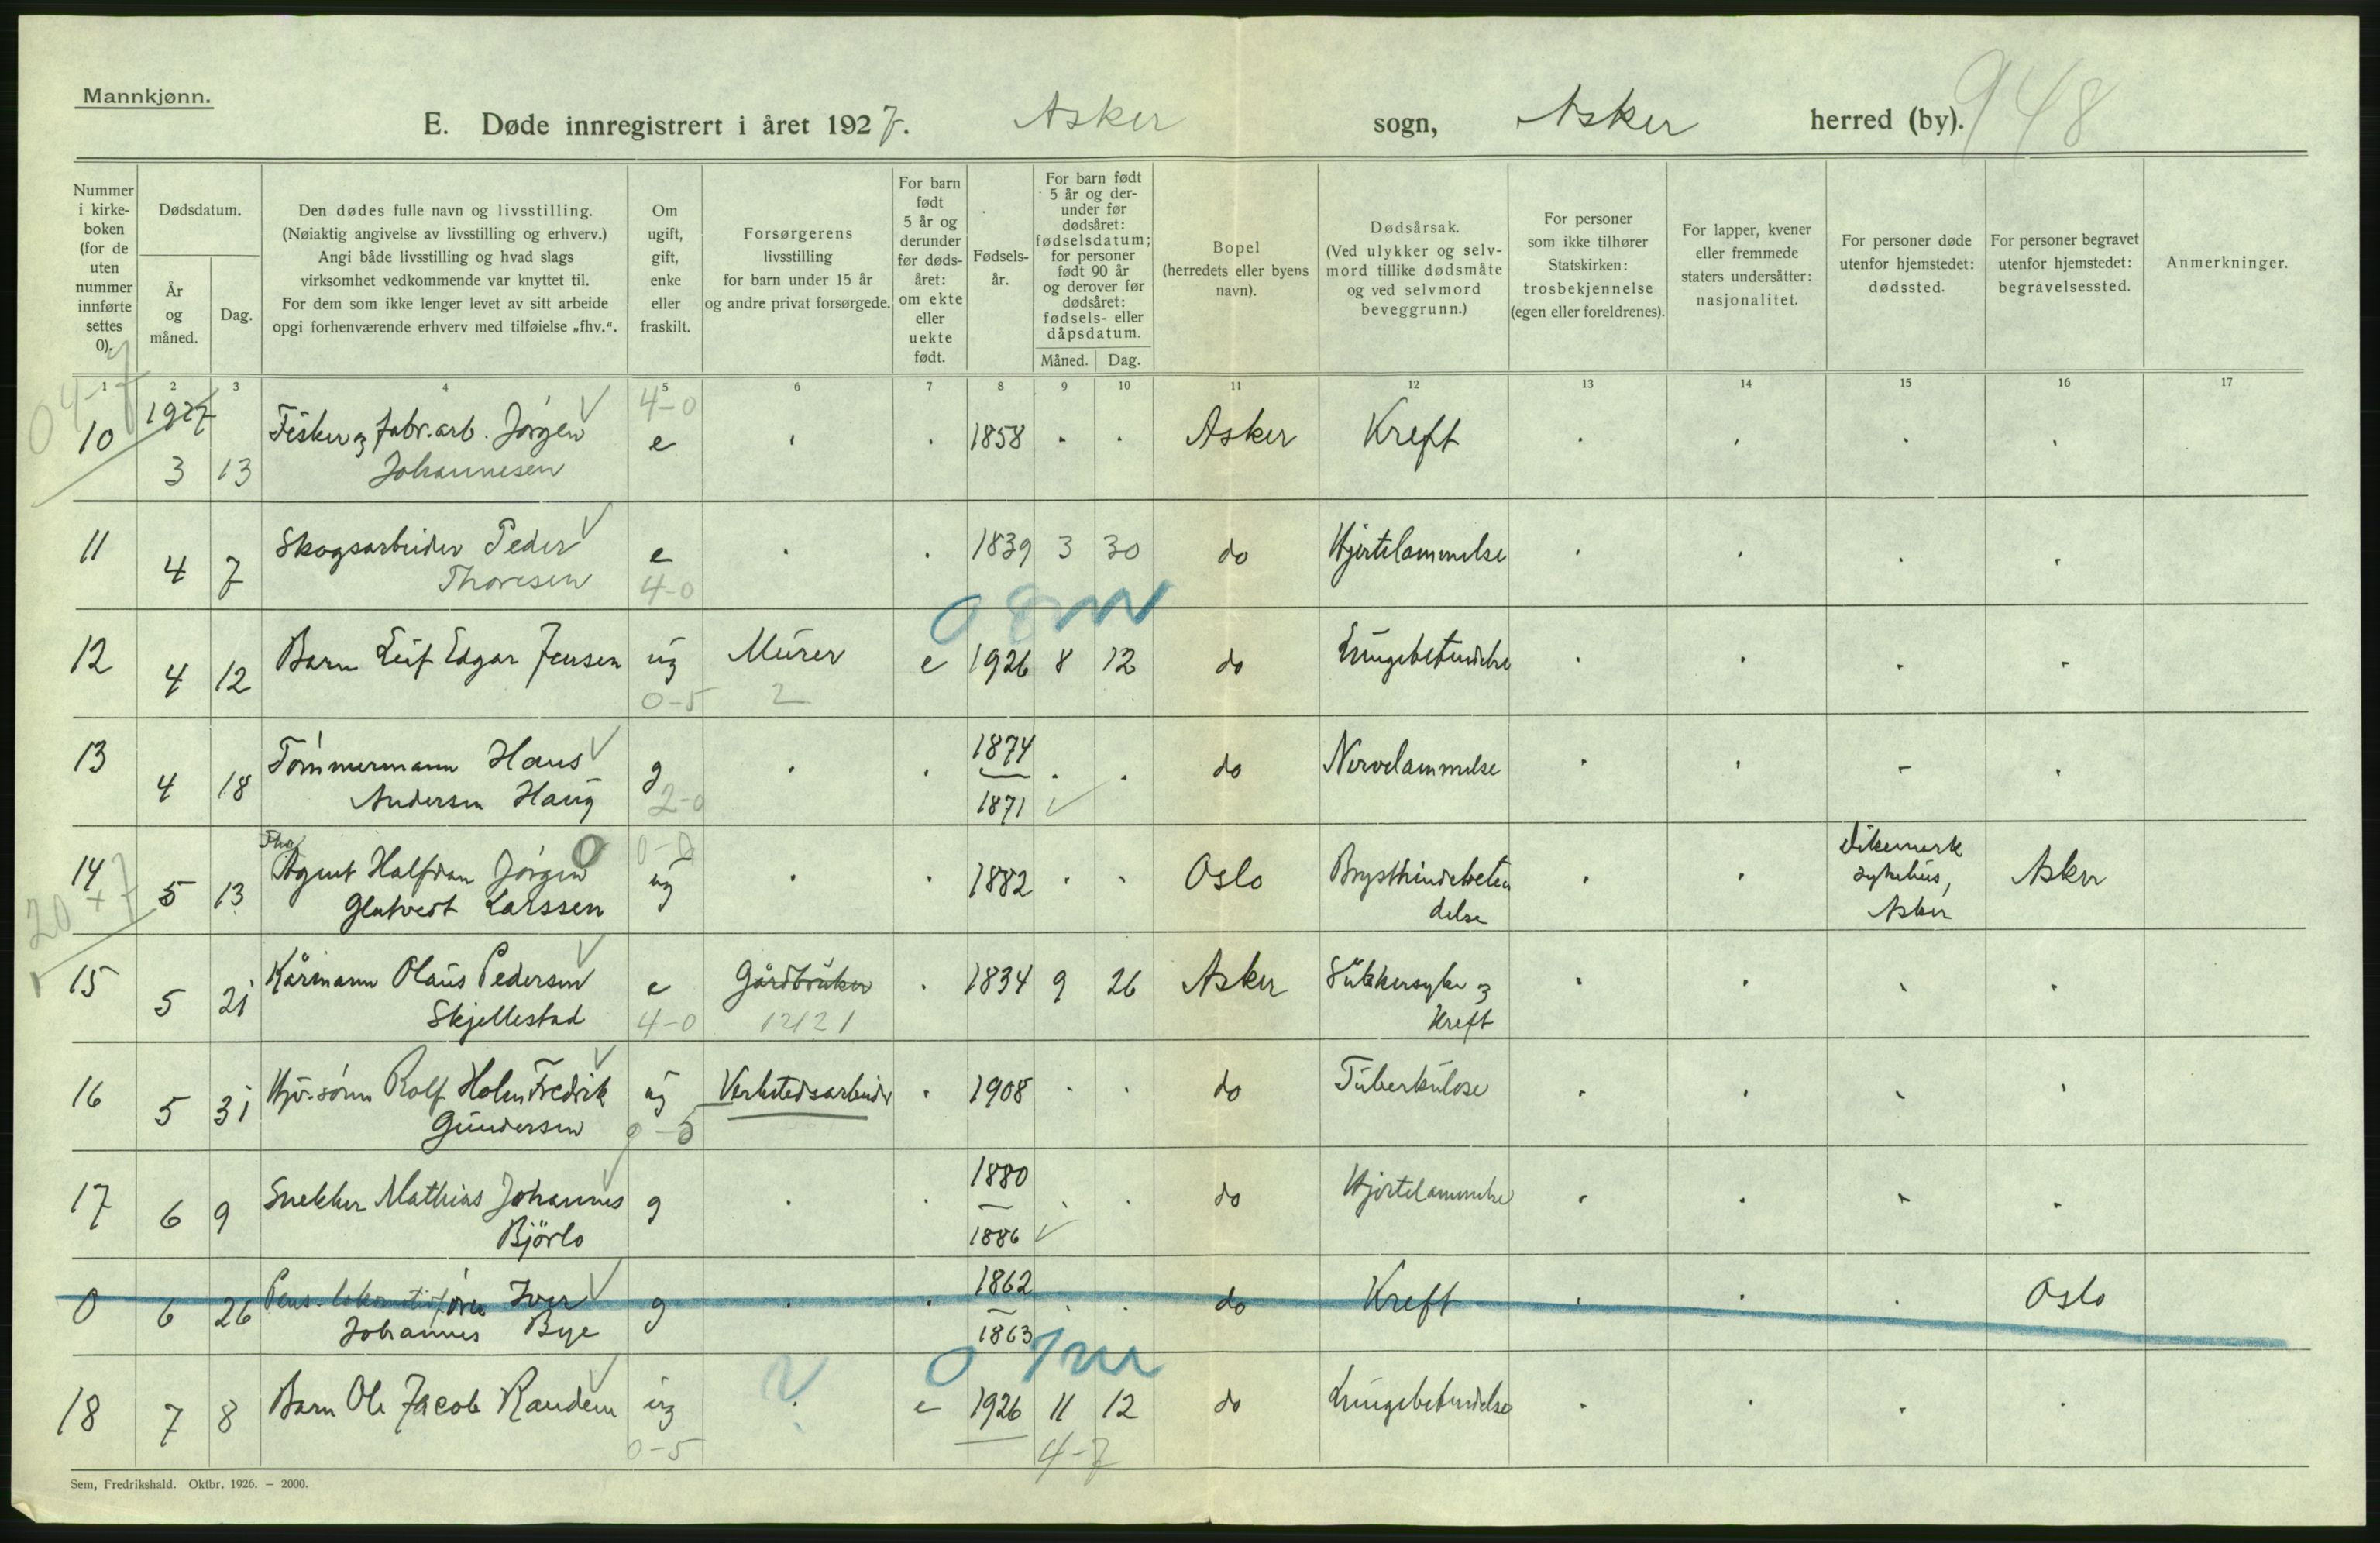 Mannkjønn.
E. Døde innregistrert i året 1927. Asker sogn, Asker herred (by). 948
Nummer i kirke-boken (for de uten nummer innførte settes 0).
Dødsdatum.
År og måned.
Dag.
Den dødes fulle navn og livsstilling.
(Nøiaktig angivelse av livsstilling og erhverv.)
Angi både livsstilling og hvad slags
virksomhet vedkommende var knyttet til.
For dem som ikke lenger levet av sitt arbeide
opgi forhenværende erhverv med tilføielse „fhv.“.
Om ugift, gift, enke eller fraskilt.
Forsørgerens
livsstilling
for barn under 15 år
og andre privat forsørgede.
For barn født 5 år og derunder før døds-året: om ekte eller uekte født.
Fødsels-år.
For barn født 5 år og der-under før dødsåret: fødselsdatum; for personer født 90 år og derover før dødsåret: fødsels- eller dåpsdatum.
Måned. Dag.
Bopel
(herredets eller byens
navn).
Dødsårsak.
(Ved ulykker og selv-
mord tillike dødsmåte
og ved selvmord
beveggrunn.)
For personer
som ikke tilhører
Statskirken:
trosbekjennelse
(egen eller foreldrenes).
For lapper, kvener
eller fremmede
staters undersåtter:
nasjonalitet.
For personer døde
utenfor hjemstedet:
dødssted.
For personer begravet
utenfor hjemstedet:
begravelsessted.
Anmerkninger.
1 2 3 4 5 6 7 8 9 10 11 12 13 14 15 16 17
04-7
1927 4-0
10 3 13 Fisker og fabr.arb. Jörgen e 1858 Asker Kreft
Johannesen
11 4 7 Skogsarbeider Peder e 1839 3 30 do Hjertelammelse
Thoresen 4-0
12 4 12 Barn Leif Edgar Jensen ug Murer e 1926 8 12 do Lungebetendelse
0-5 2
13 4 18 Tömmermann Hans g 1874 do Nervelammelse
Andersen Haug 2-0 1871
Fhv. 0-0
14 5 13 Agent Halfdan Jörgen ug 1882 Oslo Brysthindebeten Dikemark sykehus, Asker Asker
Glatvedt Larssen delse
15 5 21 Kårmann Olaus Pedersen e Gårdbruker 1834 9 26 Asker Sukkersyke og
Skjellestad 4-0 12121 Kreft
16 5 31 Hjv.sönn Rolf Holm Fredrik ug Verkstedsarbeider 1908 do Tuberkulose
Gundersen 0-5
17 6 9 Snekker Mathias Johannes g 1880 do Hjertelammelse
Björlo 1886
0 6 26 Pens. lokomotivförer Iver g 1862 do Kreft Oslo
Johannes Bye 1863
18 7 8 Barn Ole Jacob Randem ug e 1926 11 12 do Lungebetendelse
0-5 4-7
Sem, Fredrikshald. Oktbr. 1926. – 2000.